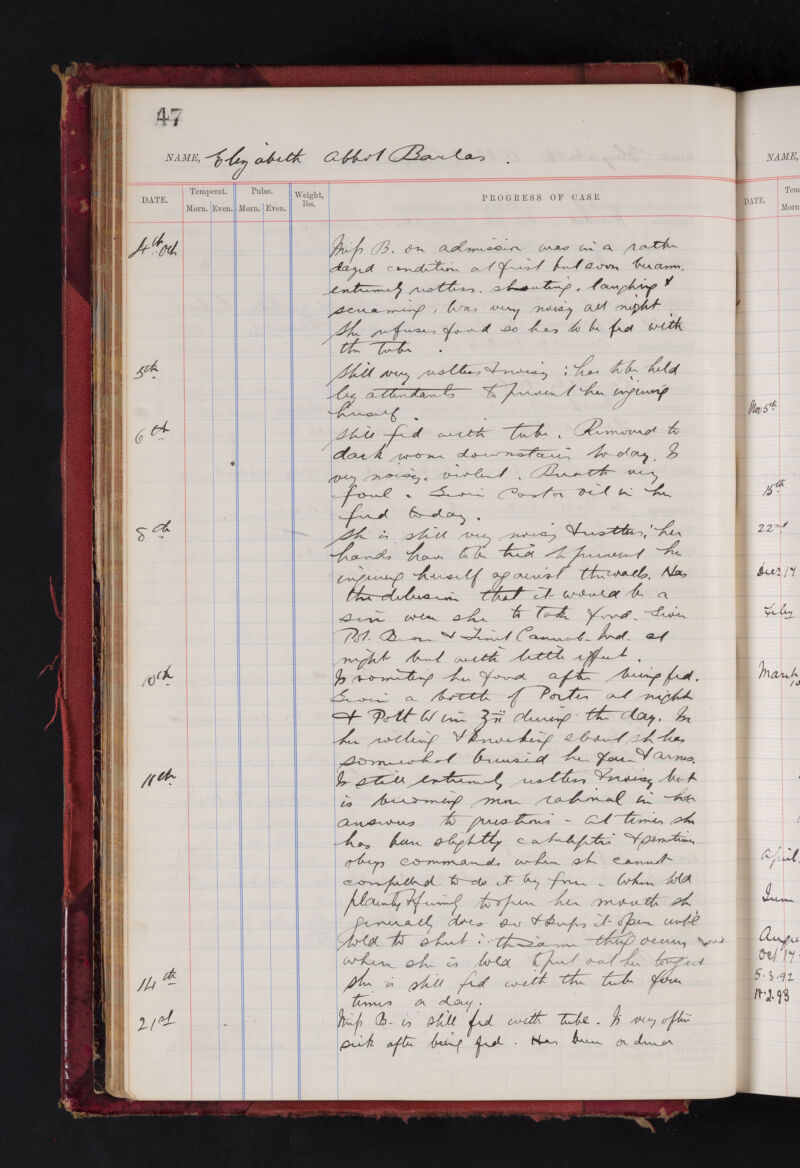 47
NAME, Elizabeth Abbot Barlas.
DATE. Temperat. Pulse. Weight, lbs. PROGRESS OF CASE
Morn. Even. Morn. Even.
4th Oct Miss B. on admission was in a rather
dazed condition at first but soon became
extremely restless. shouting, laughing &
screaming, Was very noisy all night
She refuses food so has to be fed with
the tube.
5th Still very restless & noisy: has to be held
by attendants to prevent her injuring
herself.
6th Still fed with tube. Removed to
dark room downstairs to day. Is
very noisy, violent. Breath very
foul. Given Castor oil in her
feed today.
8th She is still very noisy & restless; her
hands have to be tied to prevent her
injuring herself against the walls. Has
the delusion that it would be a
sin were she to take food. Given
Pot. Brom & Tinct Cannab. Ind. at
night but with little effect.
10th Is vomiting her food after being fed.
Given a bottle of Porter at night
& Port Wine ℥ii during the day. In
her rolling & knocking about she has
somewhat bruised her face & arms.
11th Is still extremely restless & noisy but
is becoming more rational in her
answers to questions - at times she
has been slightly cataleptic & sometimes
obeys commands when she cannot
compelled to do it by force. When told
plainly & firmly to open her mouth she
generally does so & keeps it open until
told to shut: the same thing occurs
when she is told to put out her tongue
14th She is still fed with the tube four
times a day.
21st Miss B. is still fed with tube. Is very often
sick after being fed. Has been ordered
NAME,
DATE. Tem
Morn
Nov 5th
15th
22nd
Dec 17
Feby
March
April
June
Augu
Oct 17
5.3.92